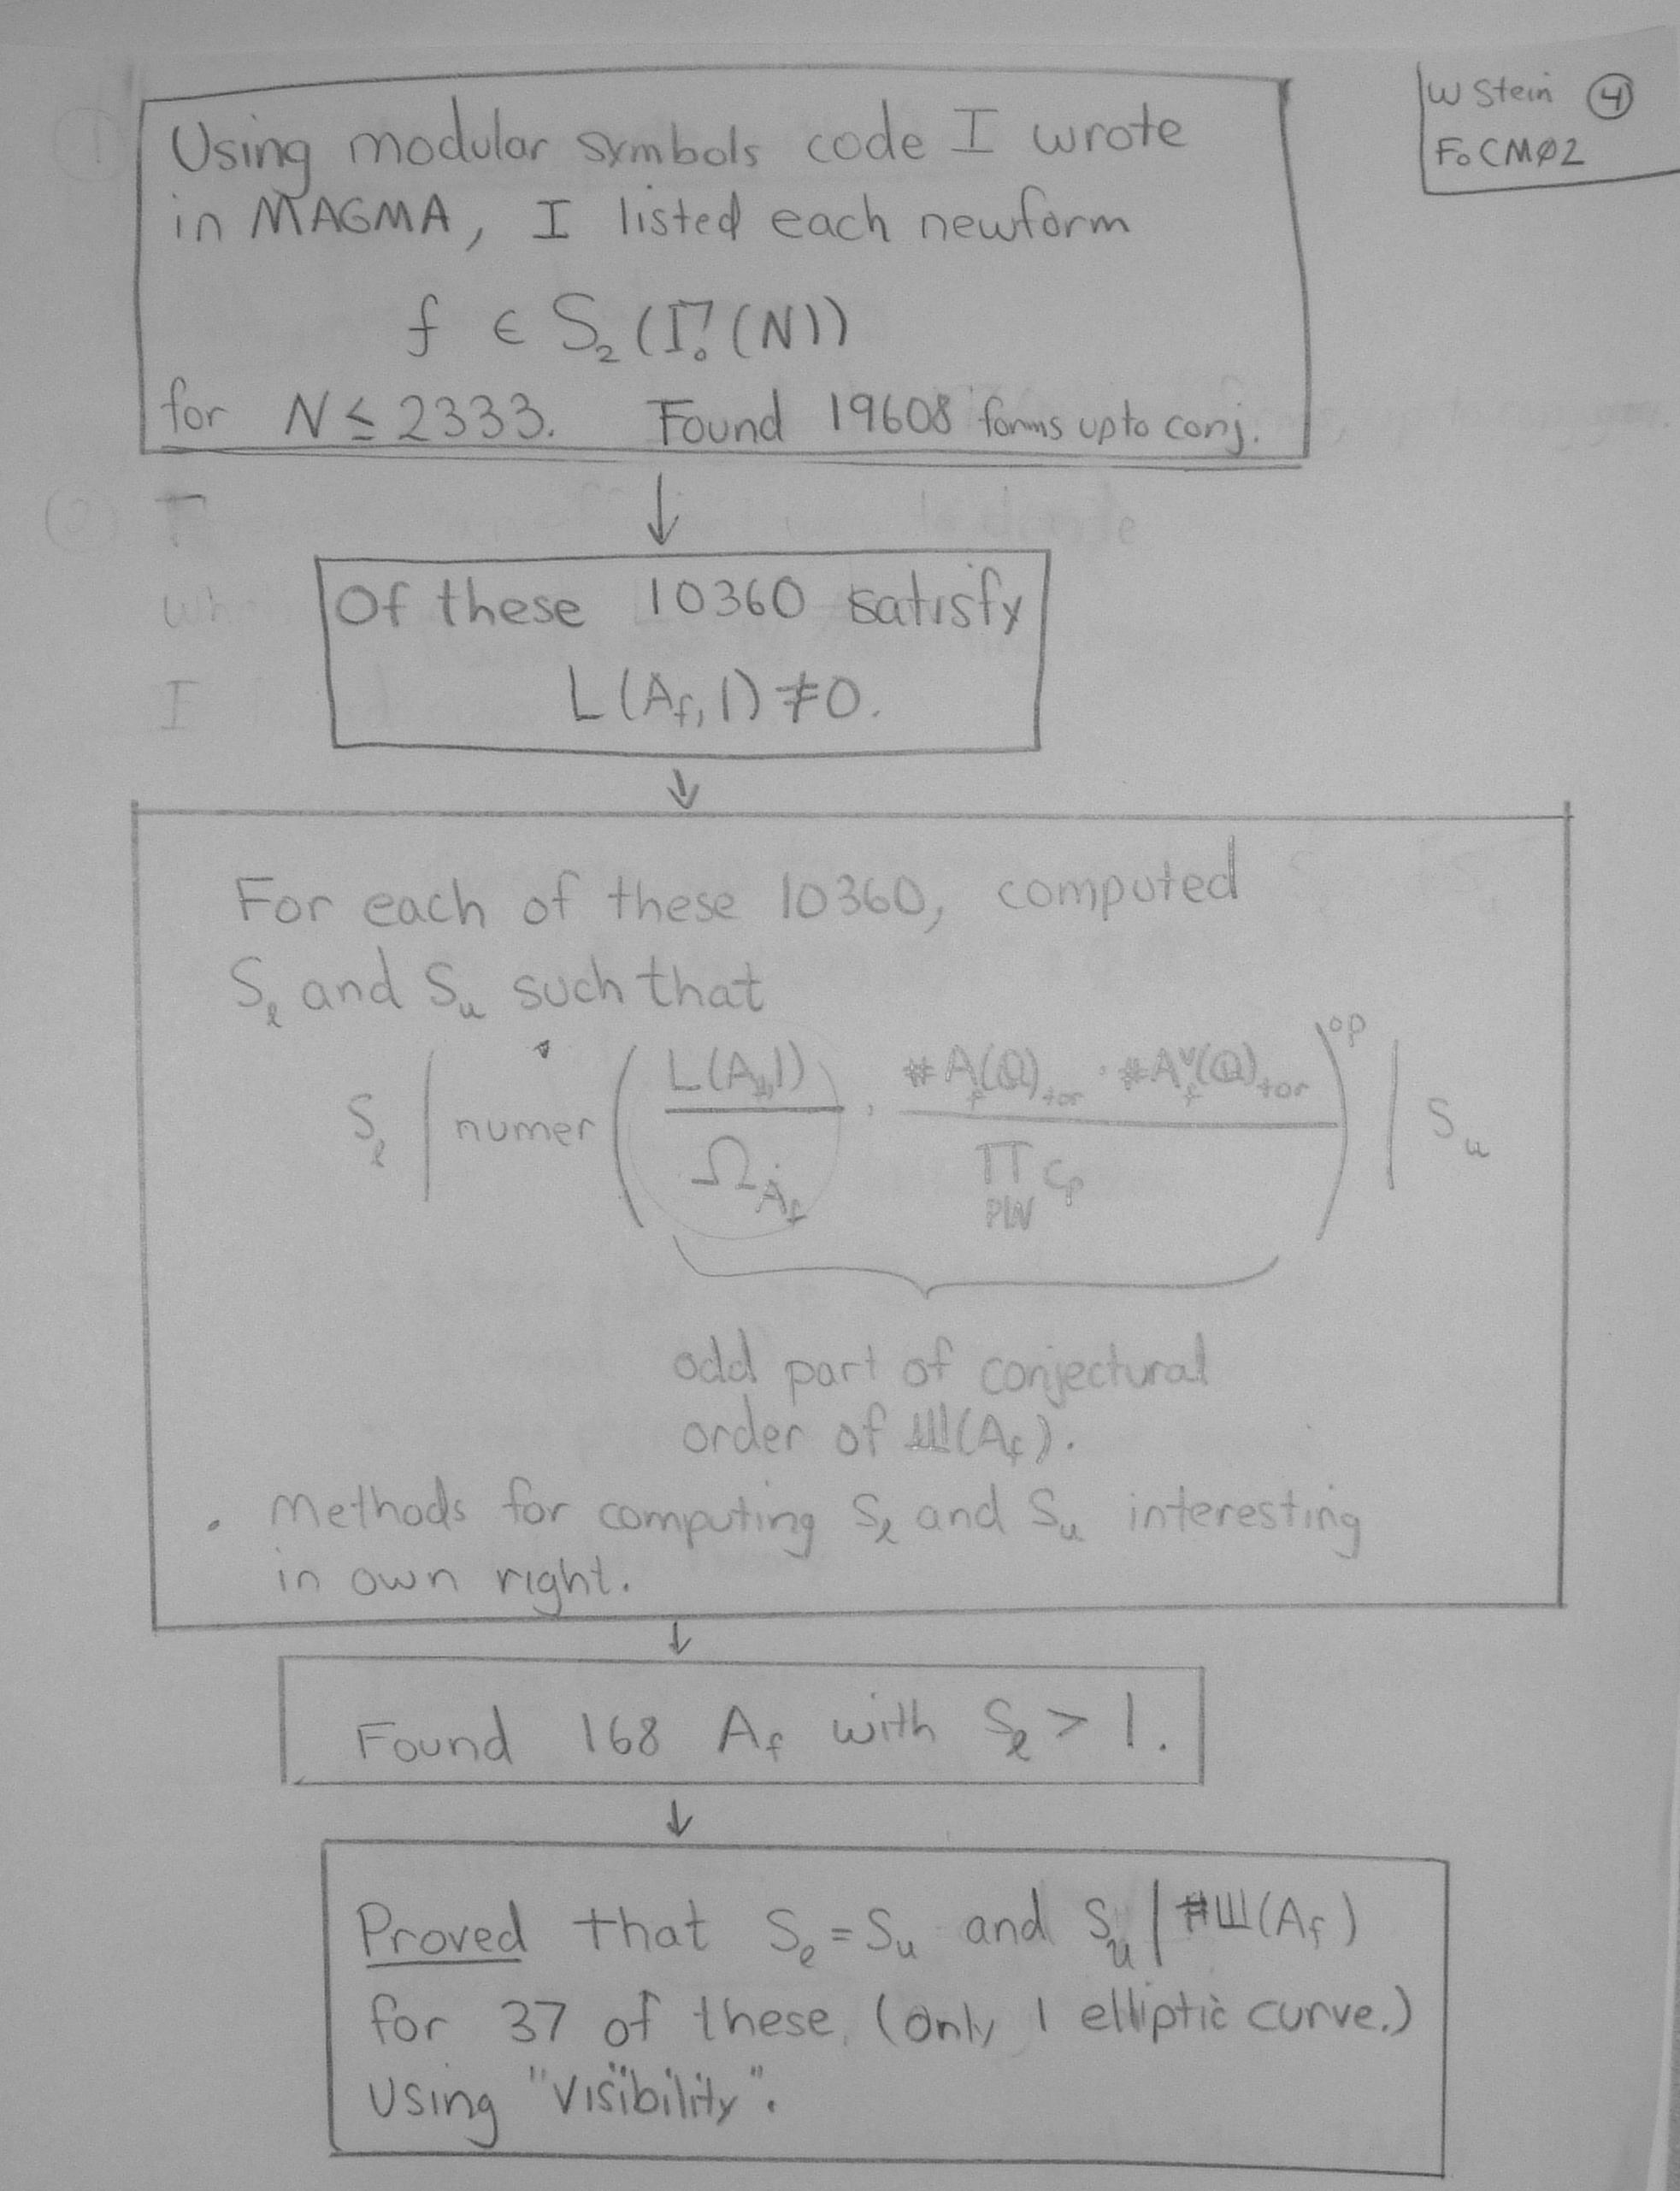 W Stein ④
FoCMØ2
Using modular symbols code I wrote
in MAGMA, I listed each newform
f ∈ S₂(Γ₀(N))
for N ≤ 2333. Found 19608 forms up to conj.
Of these 10360 satisfy
L(A_f, 1) ≠ 0.
For each of these 10360, computed
S_ℓ and S_u such that
S_ℓ | numer( L(A_f,1)/Ω_{A_f} · #A_f(Q)_tor · #A_f^∨(Q)_tor / ∏_{p|N} c_p )^op | S_u
odd part of conjectural
order of Ш(A_f).
• Methods for computing S_ℓ and S_u interesting
in own right.
Found 168 A_f with S_ℓ > 1.
Proved that S_ℓ = S_u and S_u | #Ш(A_f)
for 37 of these. (only 1 elliptic curve.)
Using "Visibility".